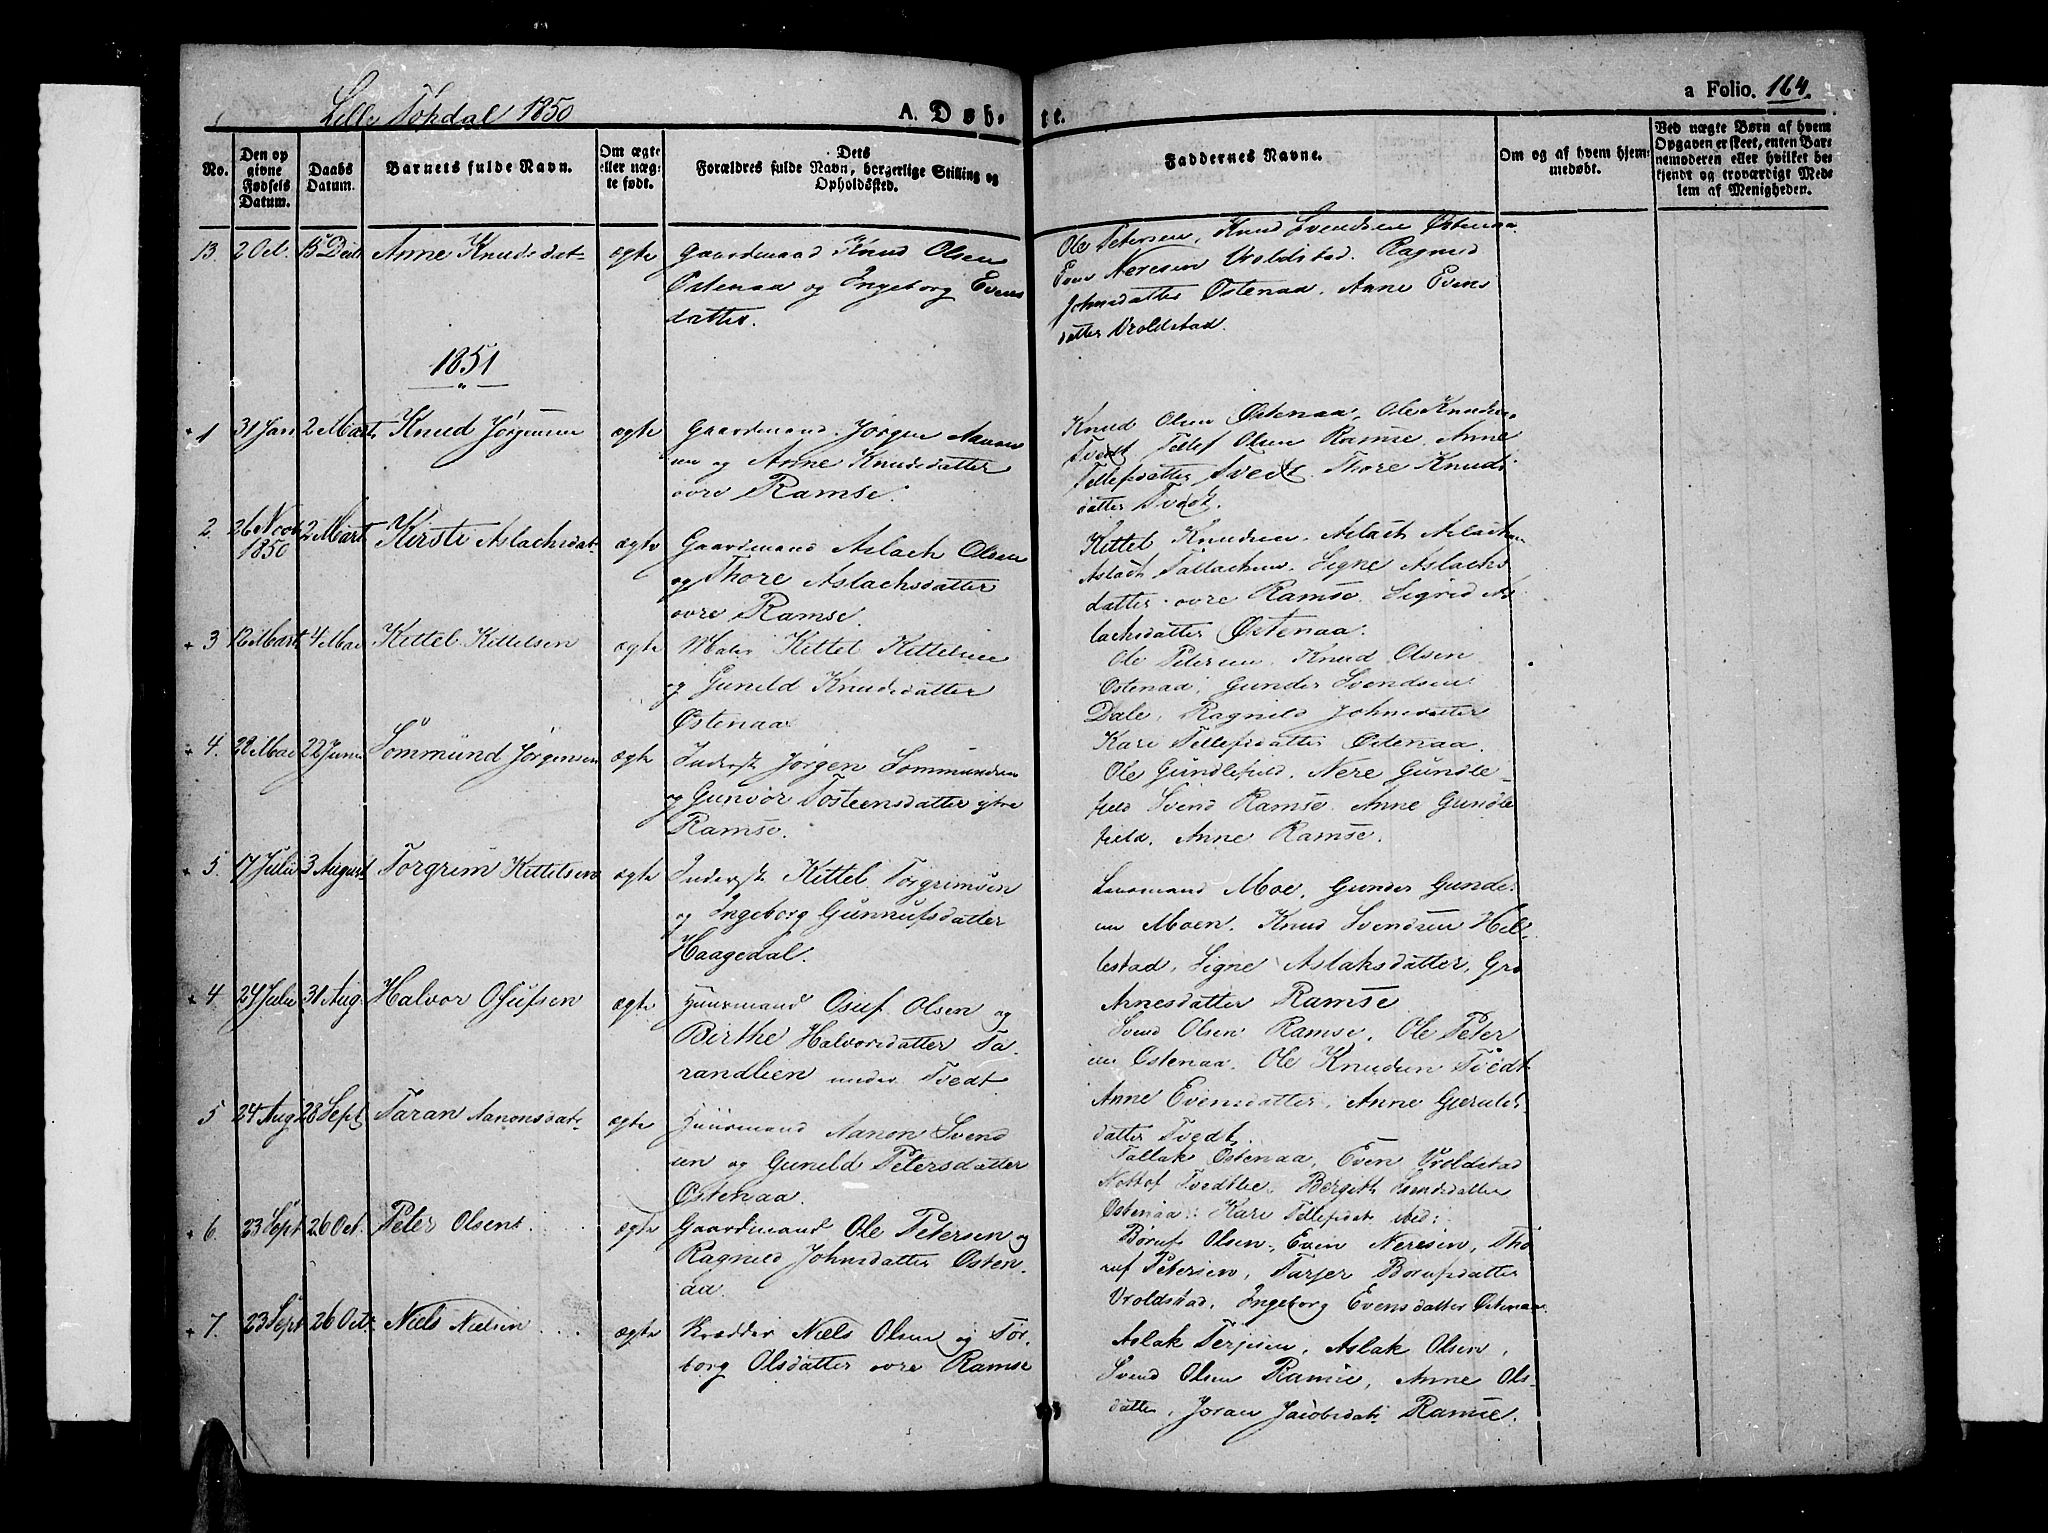 Lille Topdal 1850
A. Døb-
te.
a Folio. 164.
No.
Den op
givne
Fødsels
Datum.
Daabs
Datum.
Barnets fulde Navn.
Om ægte
eller uæg-
te født.
Dets
Forældres fulde Navn, borgerlige Stilling og
Opholdssted.
Faddernes Navne.
Om og af hvem hjem-
medøbt.
Ved uægte Børn af hvem
Opgaven er skeet, enten Bar-
nemoderen eller hvilket be-
kjendt og troværdigt Med-
lem af Menigheden.
13. 2 Oct. 15 Decb Anne Knudsdat- ægte Gaardmand Knud Olsen
Østenaa og Ingeborg Evens
datter.
Ole Petersen, Knud Svendsen Østenaa
Even Neresen Vroldstad. Ragnild
Johnsdatter Østenaa. Anne Evens
datter Vroldstad.
1851
1 31 Jan 2 Marts Knud Jørgensen ægte Gaardmand Jørgen Aanon
sen og Anne Knudsdatter
øvre Ramse.
Knud Olsen Østenaa, Ole Knudsen
Tvedt Tellef Olsen Ramse, Anne
Tellefsdatter Tvedt. Thore Knuds
datter Tvedt.
2. 26 Novb 1850 2 Mart Kirsti Aslachsdat- ægte Gaardmand Aslach Olsen
og Thore Aslachsdatter
øvre Ramse.
Kittel Knudsen. Aslach Aslachsen
Aslach Tallachsen. Signe Aslachs
datter øvre Ramse. Sigrid As
lachsdatter Østenaa.
3 12 Mart 4 Mai Kittel Kittelsen ægte Maler Kittel Kittelsen
og Gunild Knudsdatter
Østenaa
Ole Petersen. Knud Olsen
Østenaa, Gunder Svendsen
Dale, Ragnild Johnsdatter
Kari Tellefsdatter Østenaa.
4. 22 Mai 22 Juni Sommund Jørgensen ægte Inderst Jørgen Sommundsen
og Gunvor Tosteensdatter ytre
Ramse.
Ole Gundlefield. Nere Gundle-
field Svend Ramse. Anne Gundle
field. Anne Ramse.
5. 17 Julii 3 August Torgrim Kittelsen ægte Inderst Kittel Torgrimsen
og Ingeborg Gunnufsdatter
Haagedal.
Lensmand Moe, Gunder Gunder
sen Moen. Knud Svendsen Hil-
lestad, Signe Aslaksdatter, Gro
Arnesdatter Ramse
4 24 Julii 31 Aug. Halvor Osufsen ægte Huusmand Osuf Olsen og
Birthe Halvorsdatter Ta-
randlien under Tvedt
Svend Olsen Ramse, Ole Peter
sen Østenaa. Ole Knudsen Tvedt
Anne Evensdatter, Anne Gjerulds-
datter Tvedt.
5 24 Aug 28 Sept Taran Aanonsdat- ægte Huusmand Aanon Svend
sen og Gunild Petersdatter
Østenaa.
Tallak Østenaa, Even Vroldstad
Nottof Tvedtlie. Bergith Svendsdatter
Østenaa: Kari Tellefsdat ibid:
6. 23 Sept 26 Oct. Peter Olsen ægte Gaardmand Ole Petersen og
Ragnild Johnsdatter Østen-
aa.
Børuf Olsen, Even Neresen, Tho
ruf Petersen, Tarjer Børufsdatter
Vroldstad, Ingeborg Evensdatter Østenaa
7. 23 Sept 26 Oct. Niels Nielsen ægte Skrædder Niels Olsen og Tor-
borg Olsdatter øvre Ramse
Aslak Terjesen, Aslak Olsen,
Svend Olsen Ramse, Anne Ols-
datter, Joran Jacobsdat Ramse.